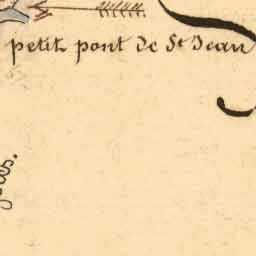 petit pont de St Jean